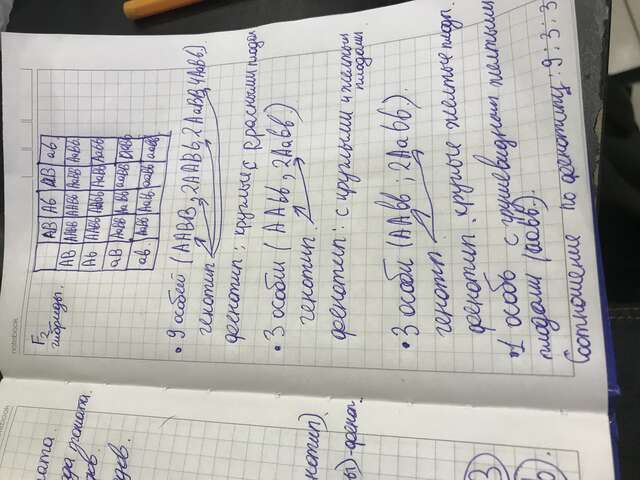 notebook
F2
гибриды.
AB Ab aB ab
AB AABB AABb AaBB AaBb
Ab AABb AAbb AaBb Aabb
aB AaBB AaBb aaBB aaBb
ab. AaBb Aabb aaBb aabb
• 9 особей (AABB, 2AABb, 2AaBB, 4AaBb).
генотип
фенотип: круглые с красными плодам
• 3 особи (AAbb, 2Aabb)
генотип.
фенотип: с круглыми и желтыми
плодами
• 3 особи (AAbb; 2Aabb).
генотип
фенотип. круглые желтые плоды.
• 1 особь с грушевидными желтыми
плодами (aabb).
Соотношение по фенотипу: 9:3:3